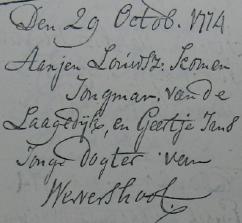 Den 29 Octob. 1774
Aanjen Louwtsz: Scomen
Jongman. van de
Laagedijk, en Geertje Jans
Jonge Dogter van
Wevershoof.